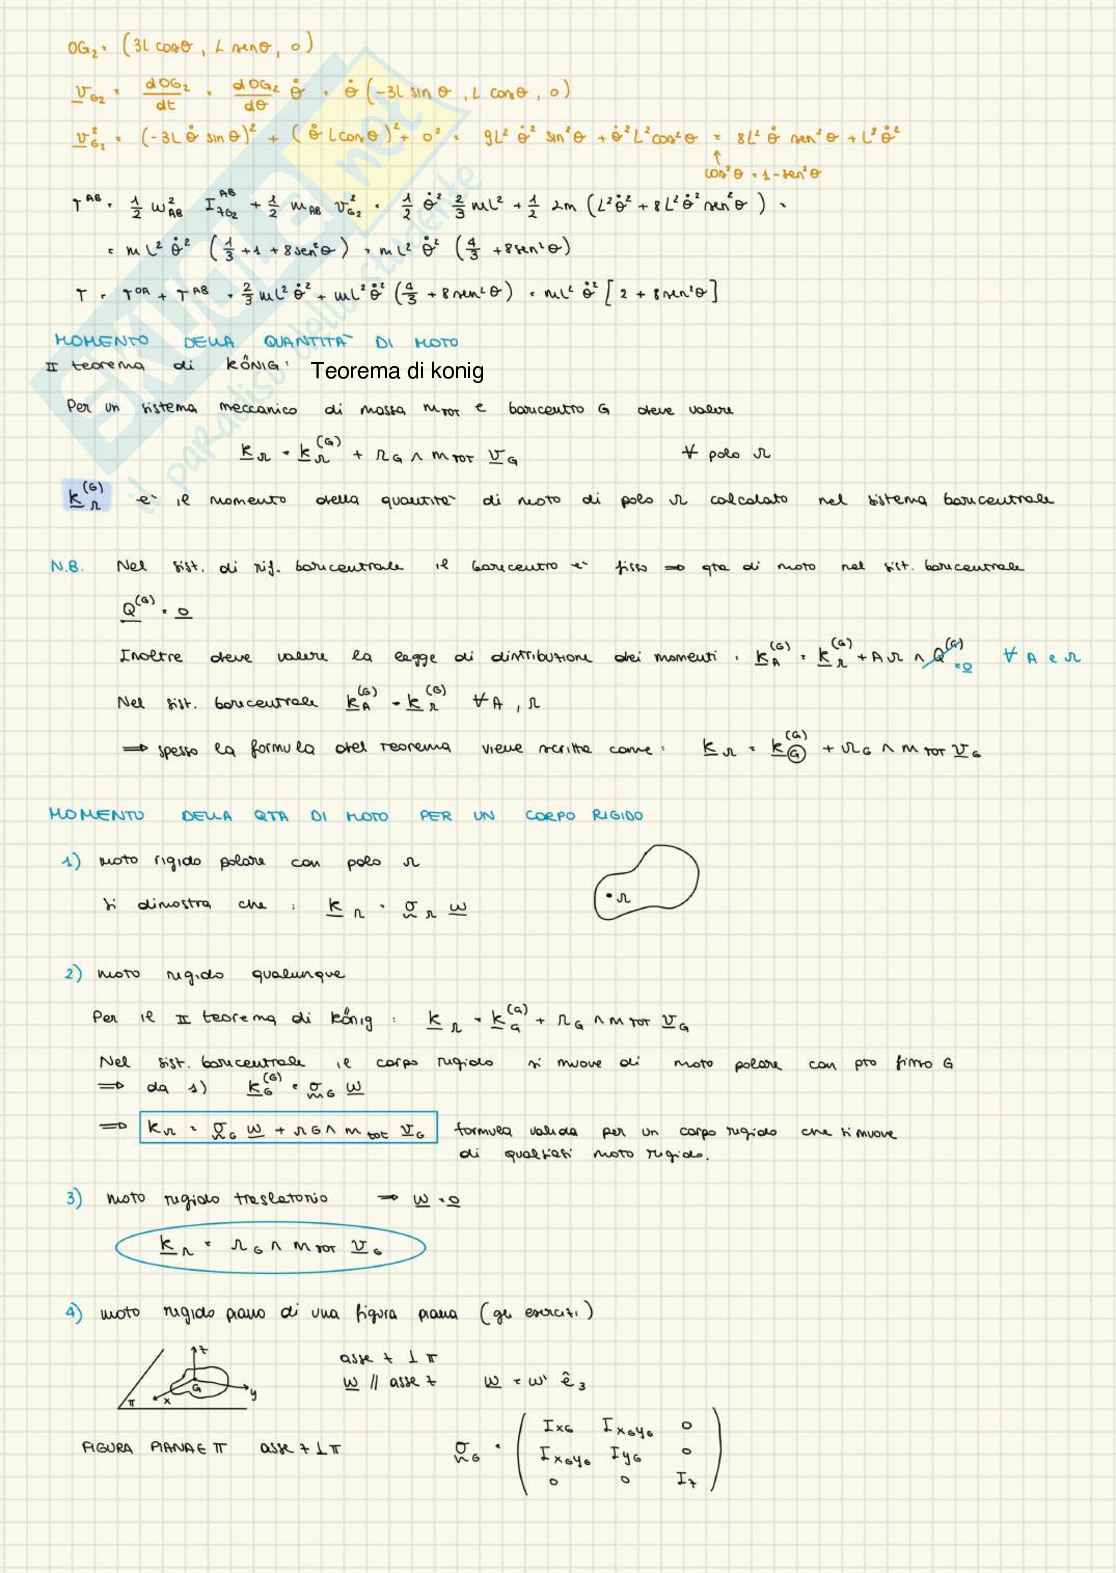 OG₂ = (3L cosθ , L senθ , 0)
v_G₂ = dOG₂/dt = dOG₂/dθ θ̇ = θ̇ (-3L sin θ , L cosθ , 0)
v²_G₂ = (-3L θ̇ sin θ)² + (θ̇ L cosθ)² + 0² = 9L² θ̇² sin²θ + θ̇² L² cos²θ = 8L² θ̇ sen²θ + L² θ̇²
↑
cos²θ = 1 - sen²θ
T^AB = 1/2 ω²_AB I^AB_zG₂ + 1/2 m_AB v²_G₂ = 1/2 θ̇² 2/3 mL² + 1/2 2m (L²θ̇² + 8L²θ̇² sen²θ) =
= mL² θ̇² (1/3 + 1 + 8sen²θ) = mL² θ̇² (4/3 + 8sen²θ)
T = T^OA + T^AB = 2/3 mL² θ̇² + mL² θ̇² (4/3 + 8 sen²θ) = mL² θ̇² [2 + 8sen²θ]
MOMENTO DELLA QUANTITA' DI MOTO
II teorema di KÖNIG: Teorema di konig
Per un sistema meccanico di massa m_TOT e baricentro G deve valere
K_Ω = K_Ω^(G) + ΩG ∧ m_TOT v_G ∀ polo Ω
K_Ω^(G) e' il momento della quantita' di moto di polo Ω calcolato nel sistema baricentrale
N.B. Nel sist. di rif. baricentrale il baricentro e' fisso ⇒ qta di moto nel sist. baricentrale
Q^(G) = 0
Inoltre deve valere la legge di distribuzione dei momenti : K_A^(G) = K_Ω^(G) + AΩ ∧ Q^(G) = 0 ∀ A e Ω
Nel sist. baricentrale K_A^(G) = K_Ω^(G) ∀ A , Ω
⇒ spesso la formula del teorema viene scritta come : K_Ω = K_G^(G) + ΩG ∧ m_TOT v_G
MOMENTO DELLA QTA DI MOTO PER UN CORPO RIGIDO
1) moto rigido polare con polo Ω
si dimostra che : K_Ω = σ_Ω ω
Ω
2) moto rigido qualunque
Per il II teorema di König : K_Ω = K_G^(G) + ΩG ∧ m_TOT v_G
Nel sist. baricentrale il corpo rigido si muove di moto polare con pto fisso G
⇒ da 1) K_G^(G) = σ_G ω
⇒ K_Ω = σ_G ω + ΩG ∧ m_tot v_G formula valida per un corpo rigido che si muove
di qualsiasi moto rigido.
3) moto rigido traslatorio ⇒ ω = 0
K_Ω = ΩG ∧ m_TOT v_G
4) moto rigido piano di una figura piana (gli esercizi)
z G x y π
asse z ⊥ π
ω // asse z ω = ω ê₃
FIGURA PIANA ∈ π asse z ⊥ π
σ_G = ( I_xG I_xGyG 0
I_xGyG I_yG 0
0 0 I_z )